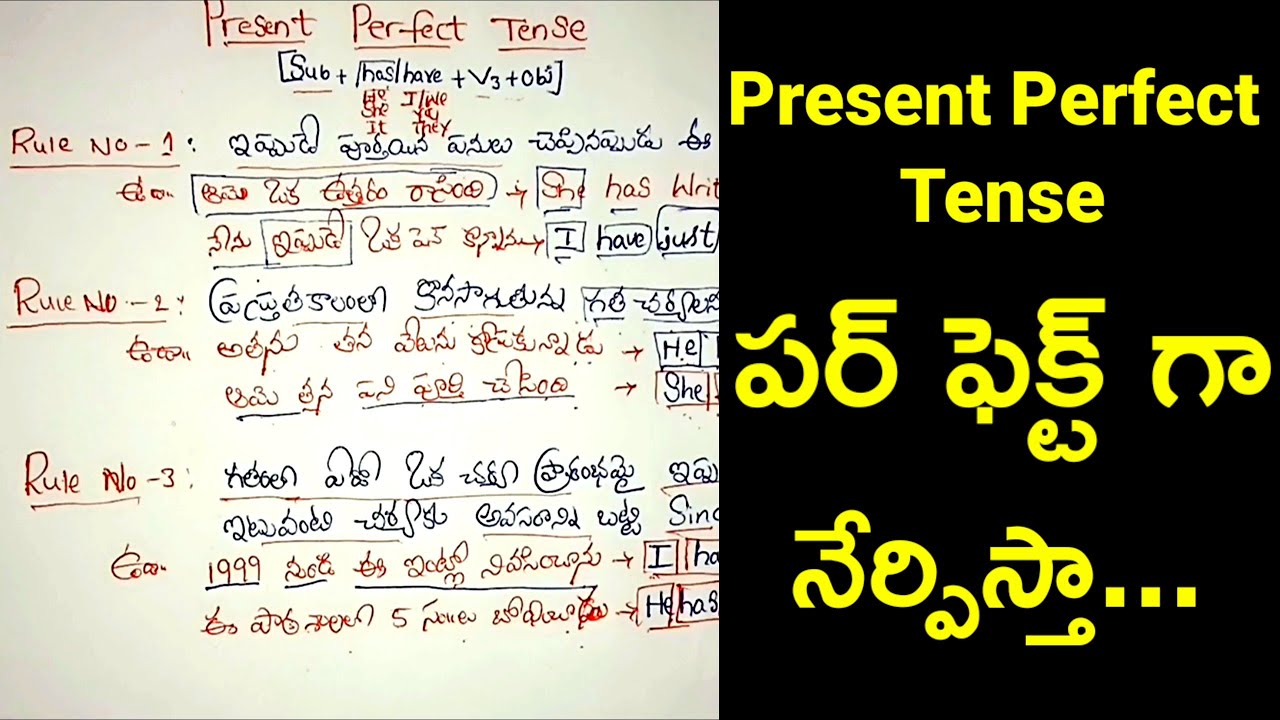 Present Perfect Tense
[Sub + has/have + V3 + Obj]
He I/we
She You
It They
Rule No - 1: ఇప్పుడే పూర్తయిన పనులు చెప్పినప్పుడు ఈ
ఉదా.. ఆమె ఒక ఉత్తరం రాసింది → She has Writ
నేను ఇప్పుడే ఒక పెన్ కొన్నాను → I have just
Rule No - 2: ప్రస్తుతకాలంలో కొనసాగుతున్న గత
ఉదా.. అతను తన → He
ఆమె తన పని పూర్తి చేసింది → She
Rule No - 3: గతంలో ఏదో ఒక చర్య ప్రారంభమై ఇప్పు
ఇటువంటి చర్యకు అవసరాన్ని బట్టి Sinc
ఉదా.. 1999 నుండి ఈ ఇంట్లో → I ha
ఈ పాఠశాలలో 5 → He has
Present Perfect
Tense
పర్ ఫెక్ట్ గా
నేర్పిస్తా...